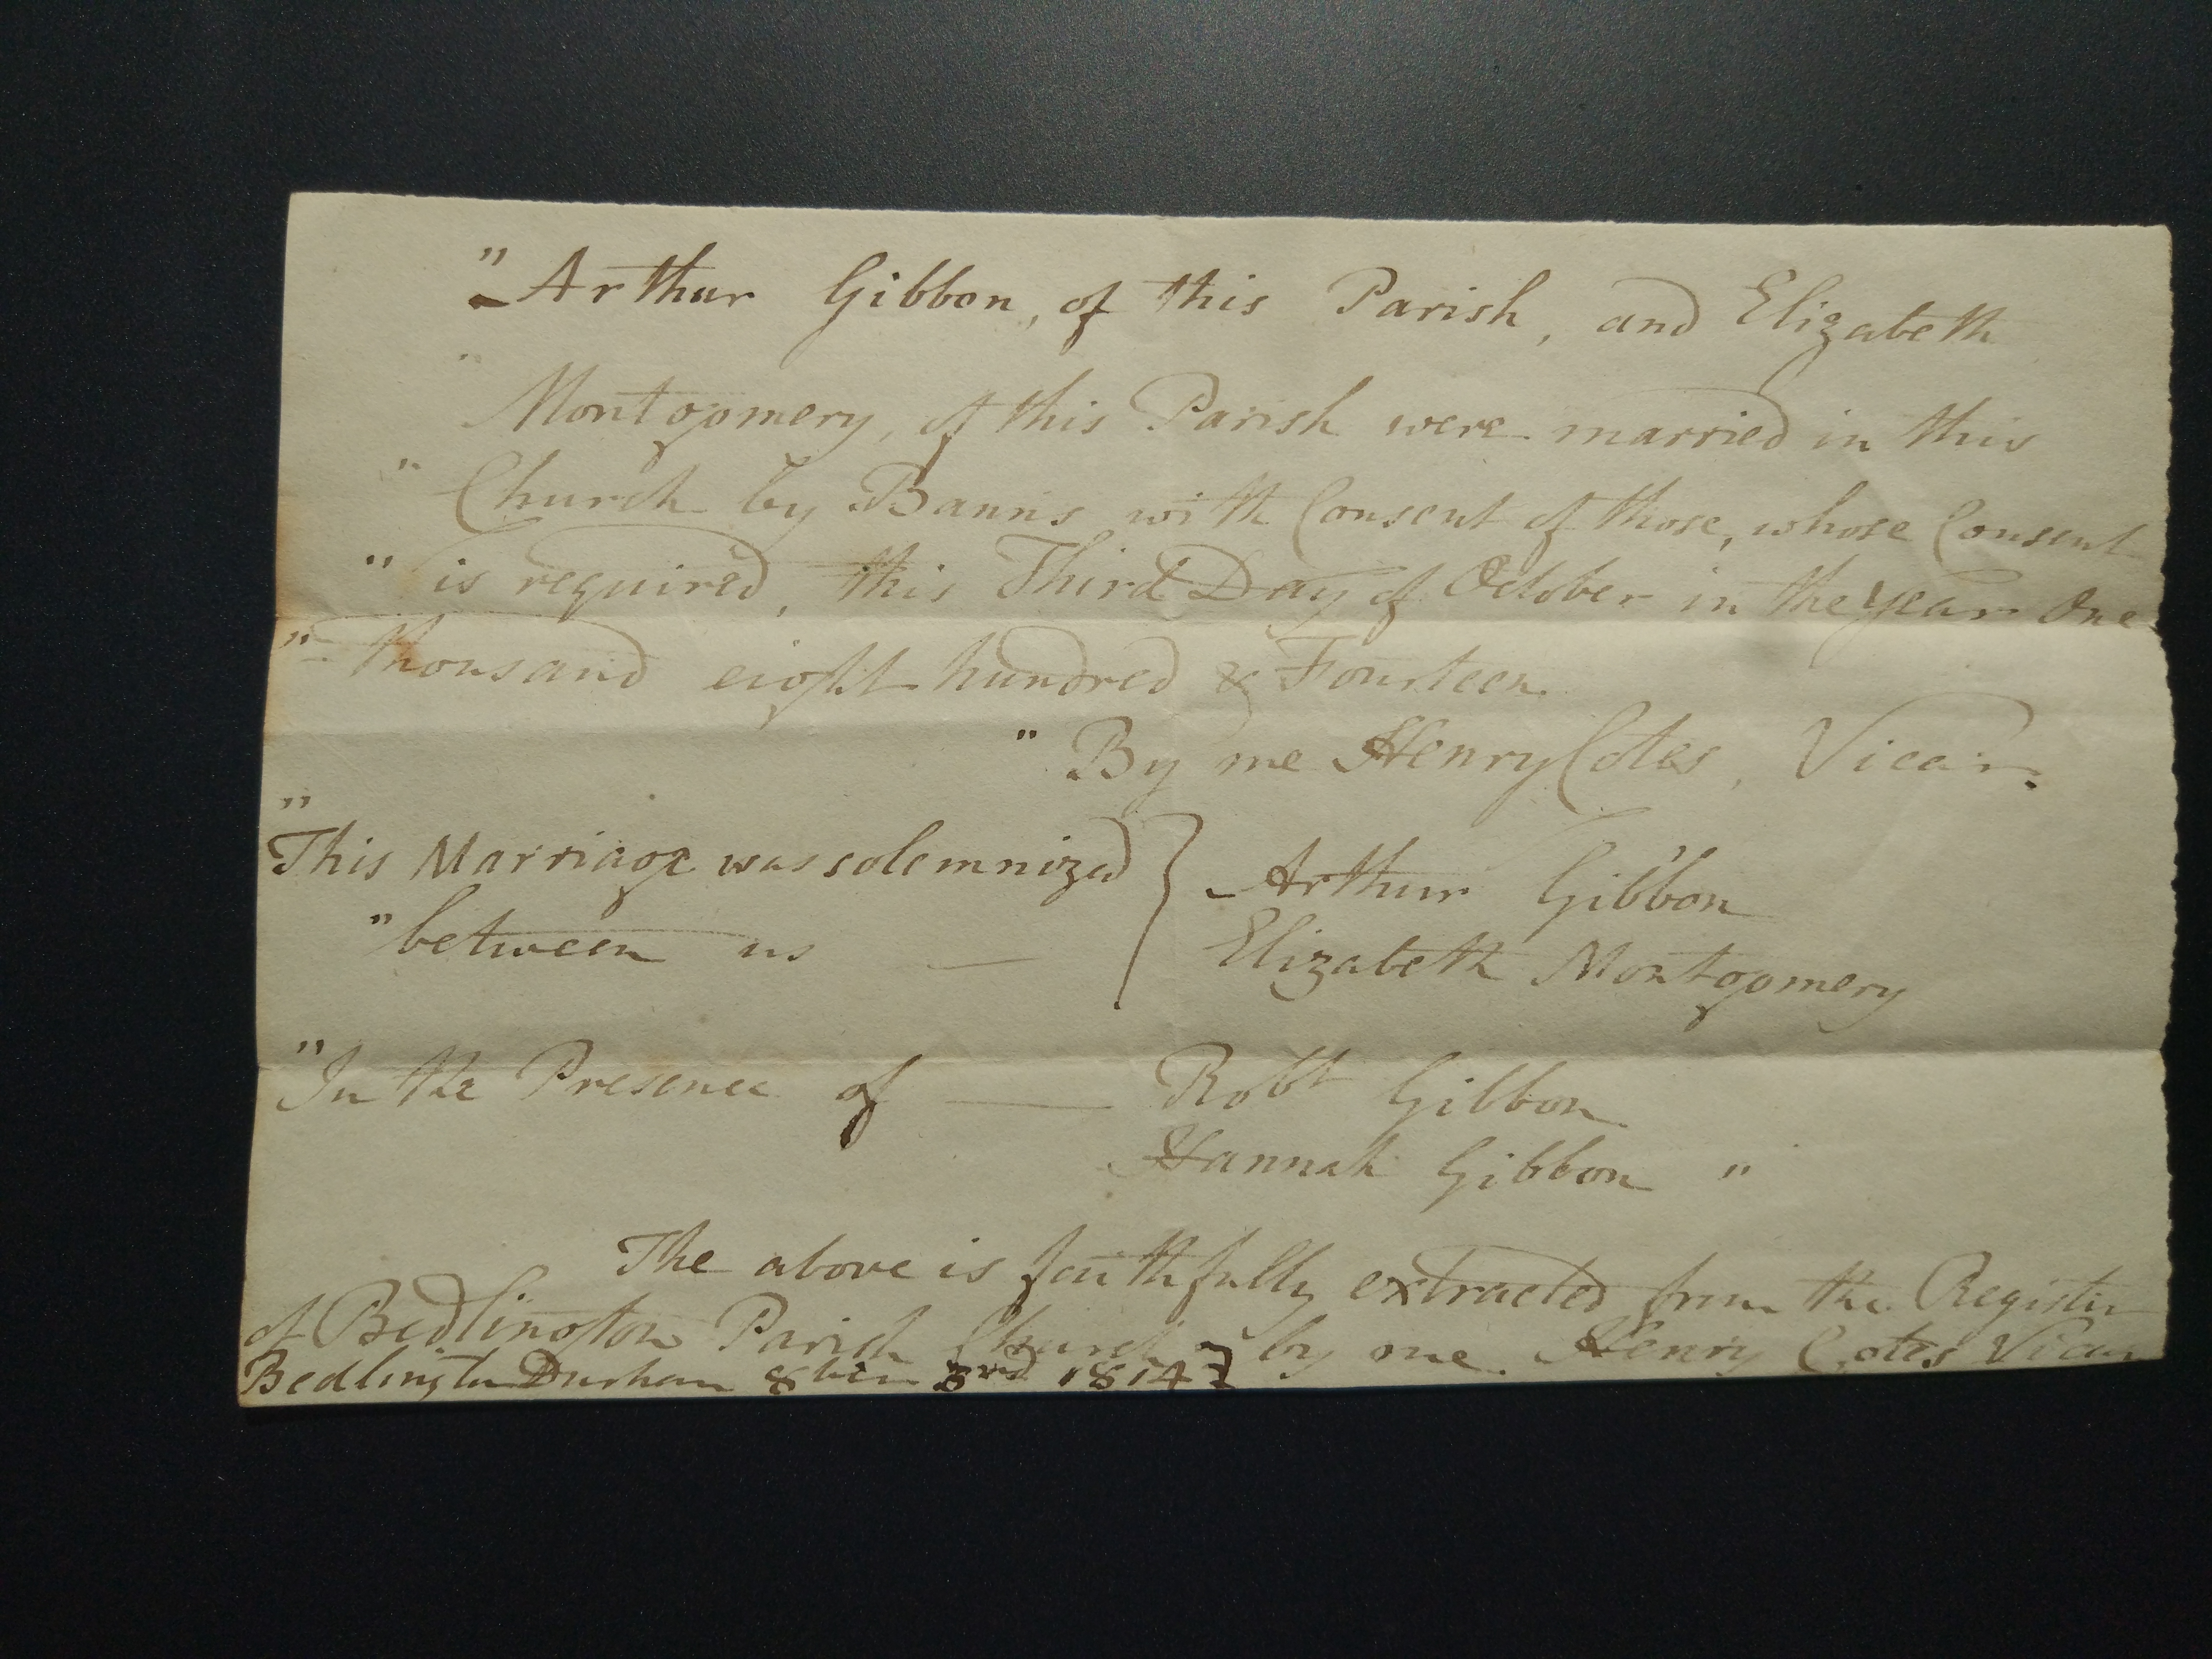 " Arthur Gibbon, of this Parish, and Elizabeth
" Montgomery, of this Parish were married in this
" Church by Banns with Consent of those, whose Consent
" is required, this Third Day of October in the year One
" thousand eight hundred & Fourteen.
" By me Henry Cotes, Vicar.
"
This Marriage was solemnized } Arthur Gibbon
" between us — Elizabeth Montgomery
" In the Presence of — Robt Gibbon
Hannah Gibbon "
The above is faithfully extracted from the Register
of Bedlington Parish Church by me. Henry Cotes Vicar
Bedlington Durham 8ber 3rd 1814